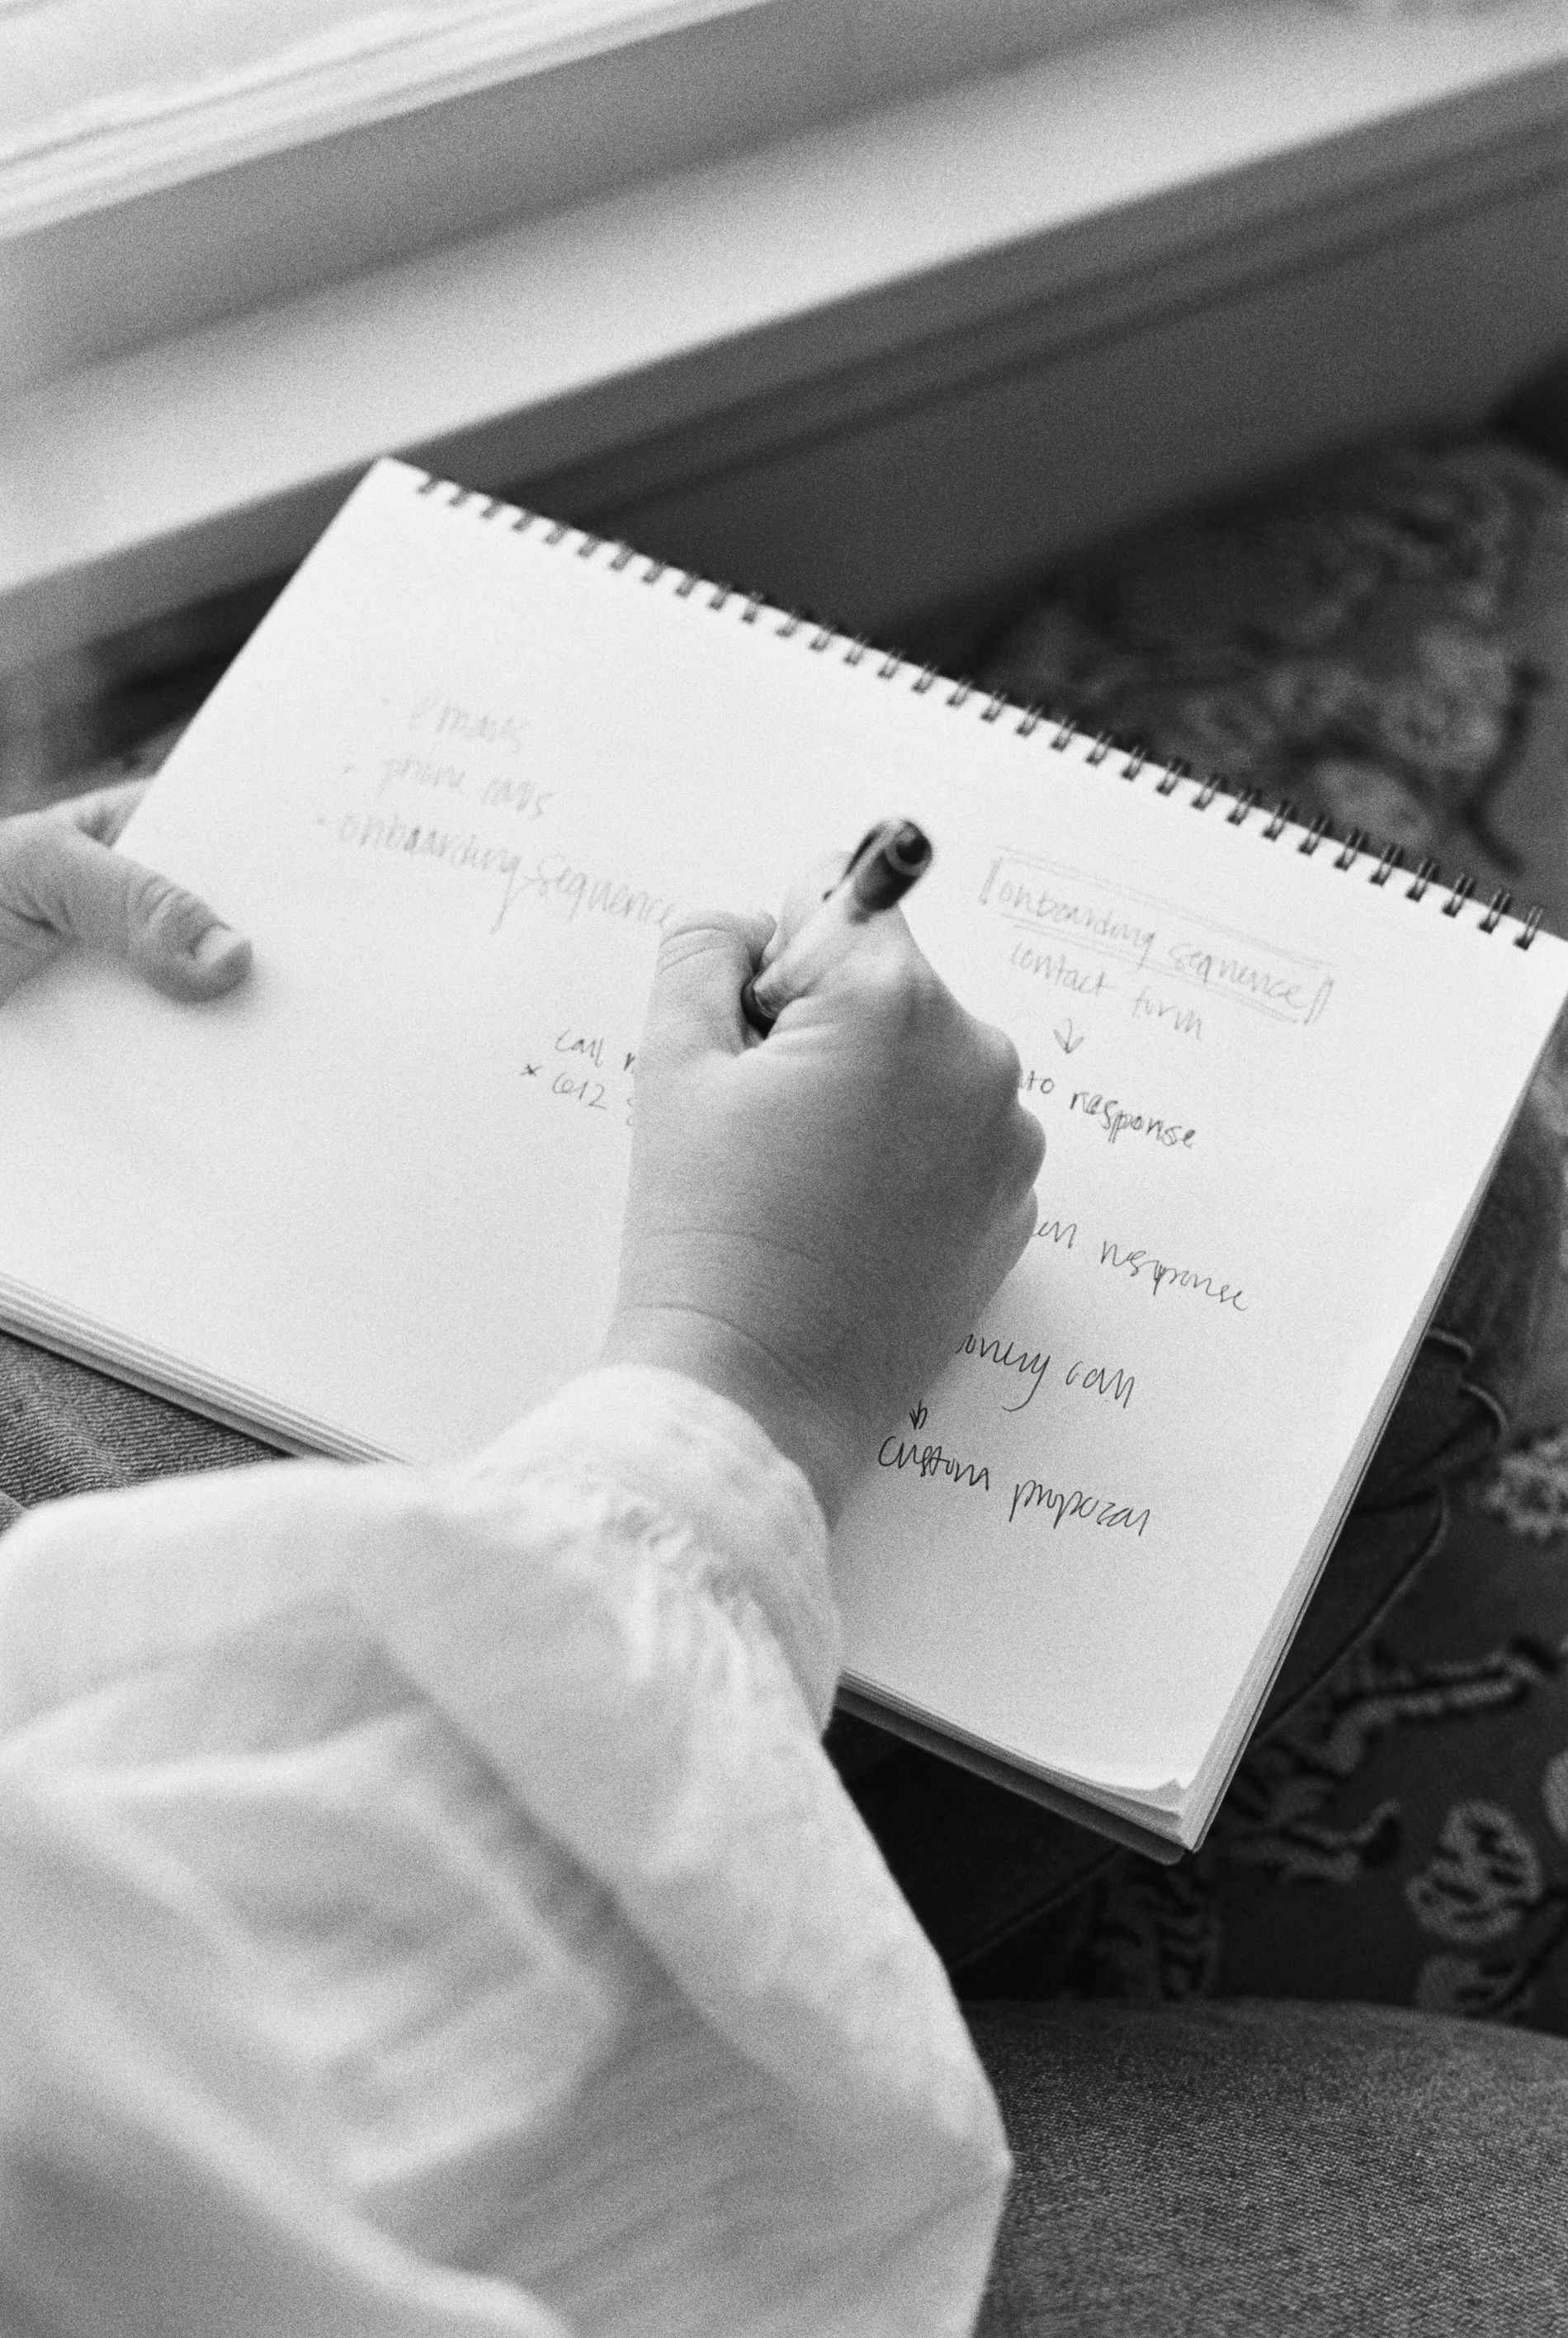 · emails
· phone calls
· onboarding sequence
call
* 612
onboarding sequence
contact form
↓
response
response
call
↓
custom proposal